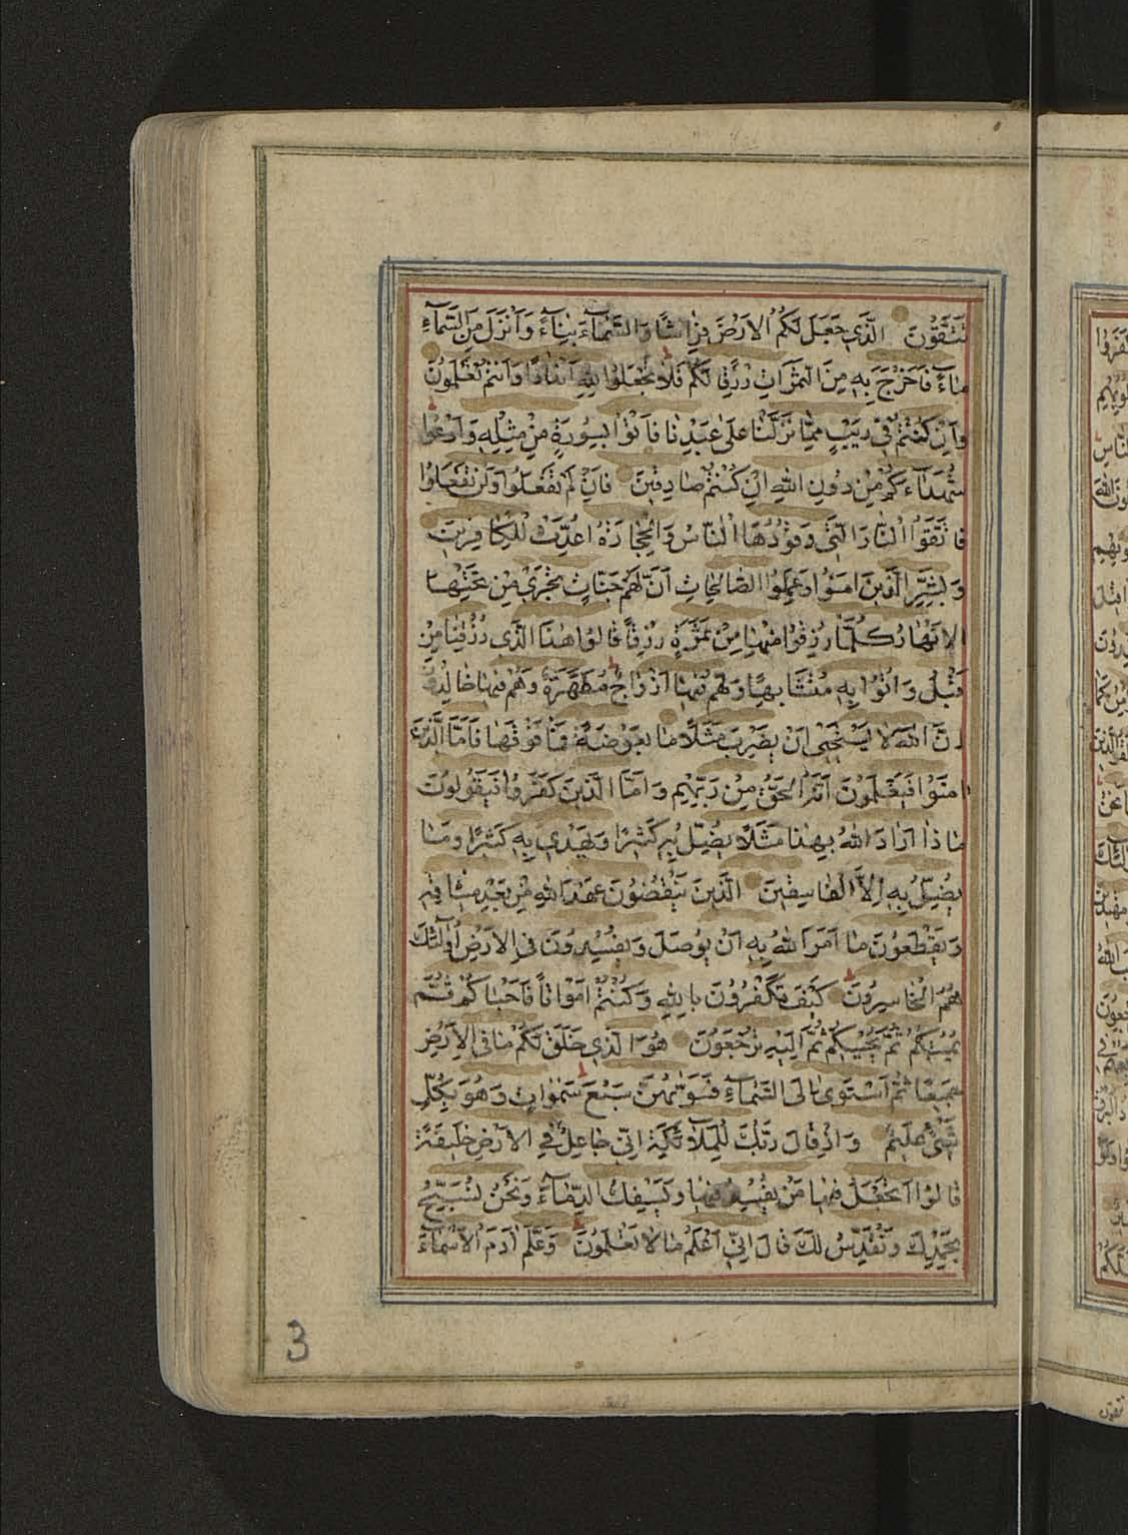 تَتَّقُونَ الَّذِي جَعَلَ لَكُمُ الْاَرْضَ فِرَاشًا وَالسَّمَاءَ بِنَاءً وَاَنْزَلَ مِنَ السَّمَاءِ
مَاءً فَاَخْرَجَ بِهِ مِنَ الثَّمَرَاتِ رِزْقًا لَكُمْ فَلَا تَجْعَلُوا لِلّٰهِ اَنْدَادًا وَاَنْتُمْ تَعْلَمُونَ
وَاِنْ كُنْتُمْ فِي رَيْبٍ مِمَّا نَزَّلْنَا عَلٰى عَبْدِنَا فَاْتُوا بِسُورَةٍ مِنْ مِثْلِهِ وَادْعُوا
شُهَدَاءَكُمْ مِنْ دُونِ اللّٰهِ اِنْ كُنْتُمْ صَادِقِينَ فَاِنْ لَمْ تَفْعَلُوا وَلَنْ تَفْعَلُوا
فَاتَّقُوا النَّارَ الَّتِي وَقُودُهَا النَّاسُ وَالْحِجَارَةُ اُعِدَّتْ لِلْكَافِرِينَ
وَبَشِّرِ الَّذِينَ اٰمَنُوا وَعَمِلُوا الصَّالِحَاتِ اَنَّ لَهُمْ جَنَّاتٍ تَجْرِي مِنْ تَحْتِهَا
الْاَنْهَارُ كُلَّمَا رُزِقُوا مِنْهَا مِنْ ثَمَرَةٍ رِزْقًا قَالُوا هٰذَا الَّذِي رُزِقْنَا مِنْ
قَبْلُ وَاُتُوا بِهِ مُتَشَابِهًا وَلَهُمْ فِيهَا اَزْوَاجٌ مُطَهَّرَةٌ وَهُمْ فِيهَا خَالِدُونَ
اِنَّ اللّٰهَ لَا يَسْتَحْيِي اَنْ يَضْرِبَ مَثَلًا مَا بَعُوضَةً فَمَا فَوْقَهَا فَاَمَّا الَّذِينَ
اٰمَنُوا فَيَعْلَمُونَ اَنَّهُ الْحَقُّ مِنْ رَبِّهِمْ وَاَمَّا الَّذِينَ كَفَرُوا فَيَقُولُونَ
مَاذَا اَرَادَ اللّٰهُ بِهٰذَا مَثَلًا يُضِلُّ بِهِ كَثِيرًا وَيَهْدِي بِهِ كَثِيرًا وَمَا
يُضِلُّ بِهِ اِلَّا الْفَاسِقِينَ الَّذِينَ يَنْقُضُونَ عَهْدَ اللّٰهِ مِنْ بَعْدِ مِيثَاقِهِ
وَيَقْطَعُونَ مَا اَمَرَ اللّٰهُ بِهِ اَنْ يُوصَلَ وَيُفْسِدُونَ فِي الْاَرْضِ اُولٰئِكَ
هُمُ الْخَاسِرُونَ كَيْفَ تَكْفُرُونَ بِاللّٰهِ وَكُنْتُمْ اَمْوَاتًا فَاَحْيَاكُمْ ثُمَّ
يُمِيتُكُمْ ثُمَّ يُحْيِيكُمْ ثُمَّ اِلَيْهِ تُرْجَعُونَ هُوَ الَّذِي خَلَقَ لَكُمْ مَا فِي الْاَرْضِ
جَمِيعًا ثُمَّ اسْتَوٰى اِلَى السَّمَاءِ فَسَوّٰيهُنَّ سَبْعَ سَمٰوَاتٍ وَهُوَ بِكُلِّ
شَيْءٍ عَلِيمٌ وَاِذْ قَالَ رَبُّكَ لِلْمَلٰئِكَةِ اِنِّي جَاعِلٌ فِي الْاَرْضِ خَلِيفَةً
قَالُوا اَتَجْعَلُ فِيهَا مَنْ يُفْسِدُ فِيهَا وَيَسْفِكُ الدِّمَاءَ وَنَحْنُ نُسَبِّحُ
بِحَمْدِكَ وَنُقَدِّسُ لَكَ قَالَ اِنِّي اَعْلَمُ مَا لَا تَعْلَمُونَ وَعَلَّمَ اٰدَمَ الْاَسْمَاءَ
3